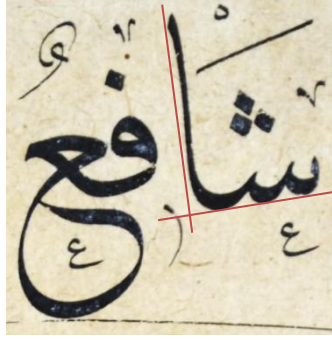 شَافعُ